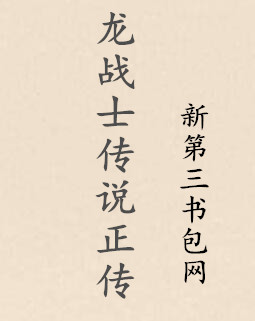 龙战士传说正传
新第三书包网